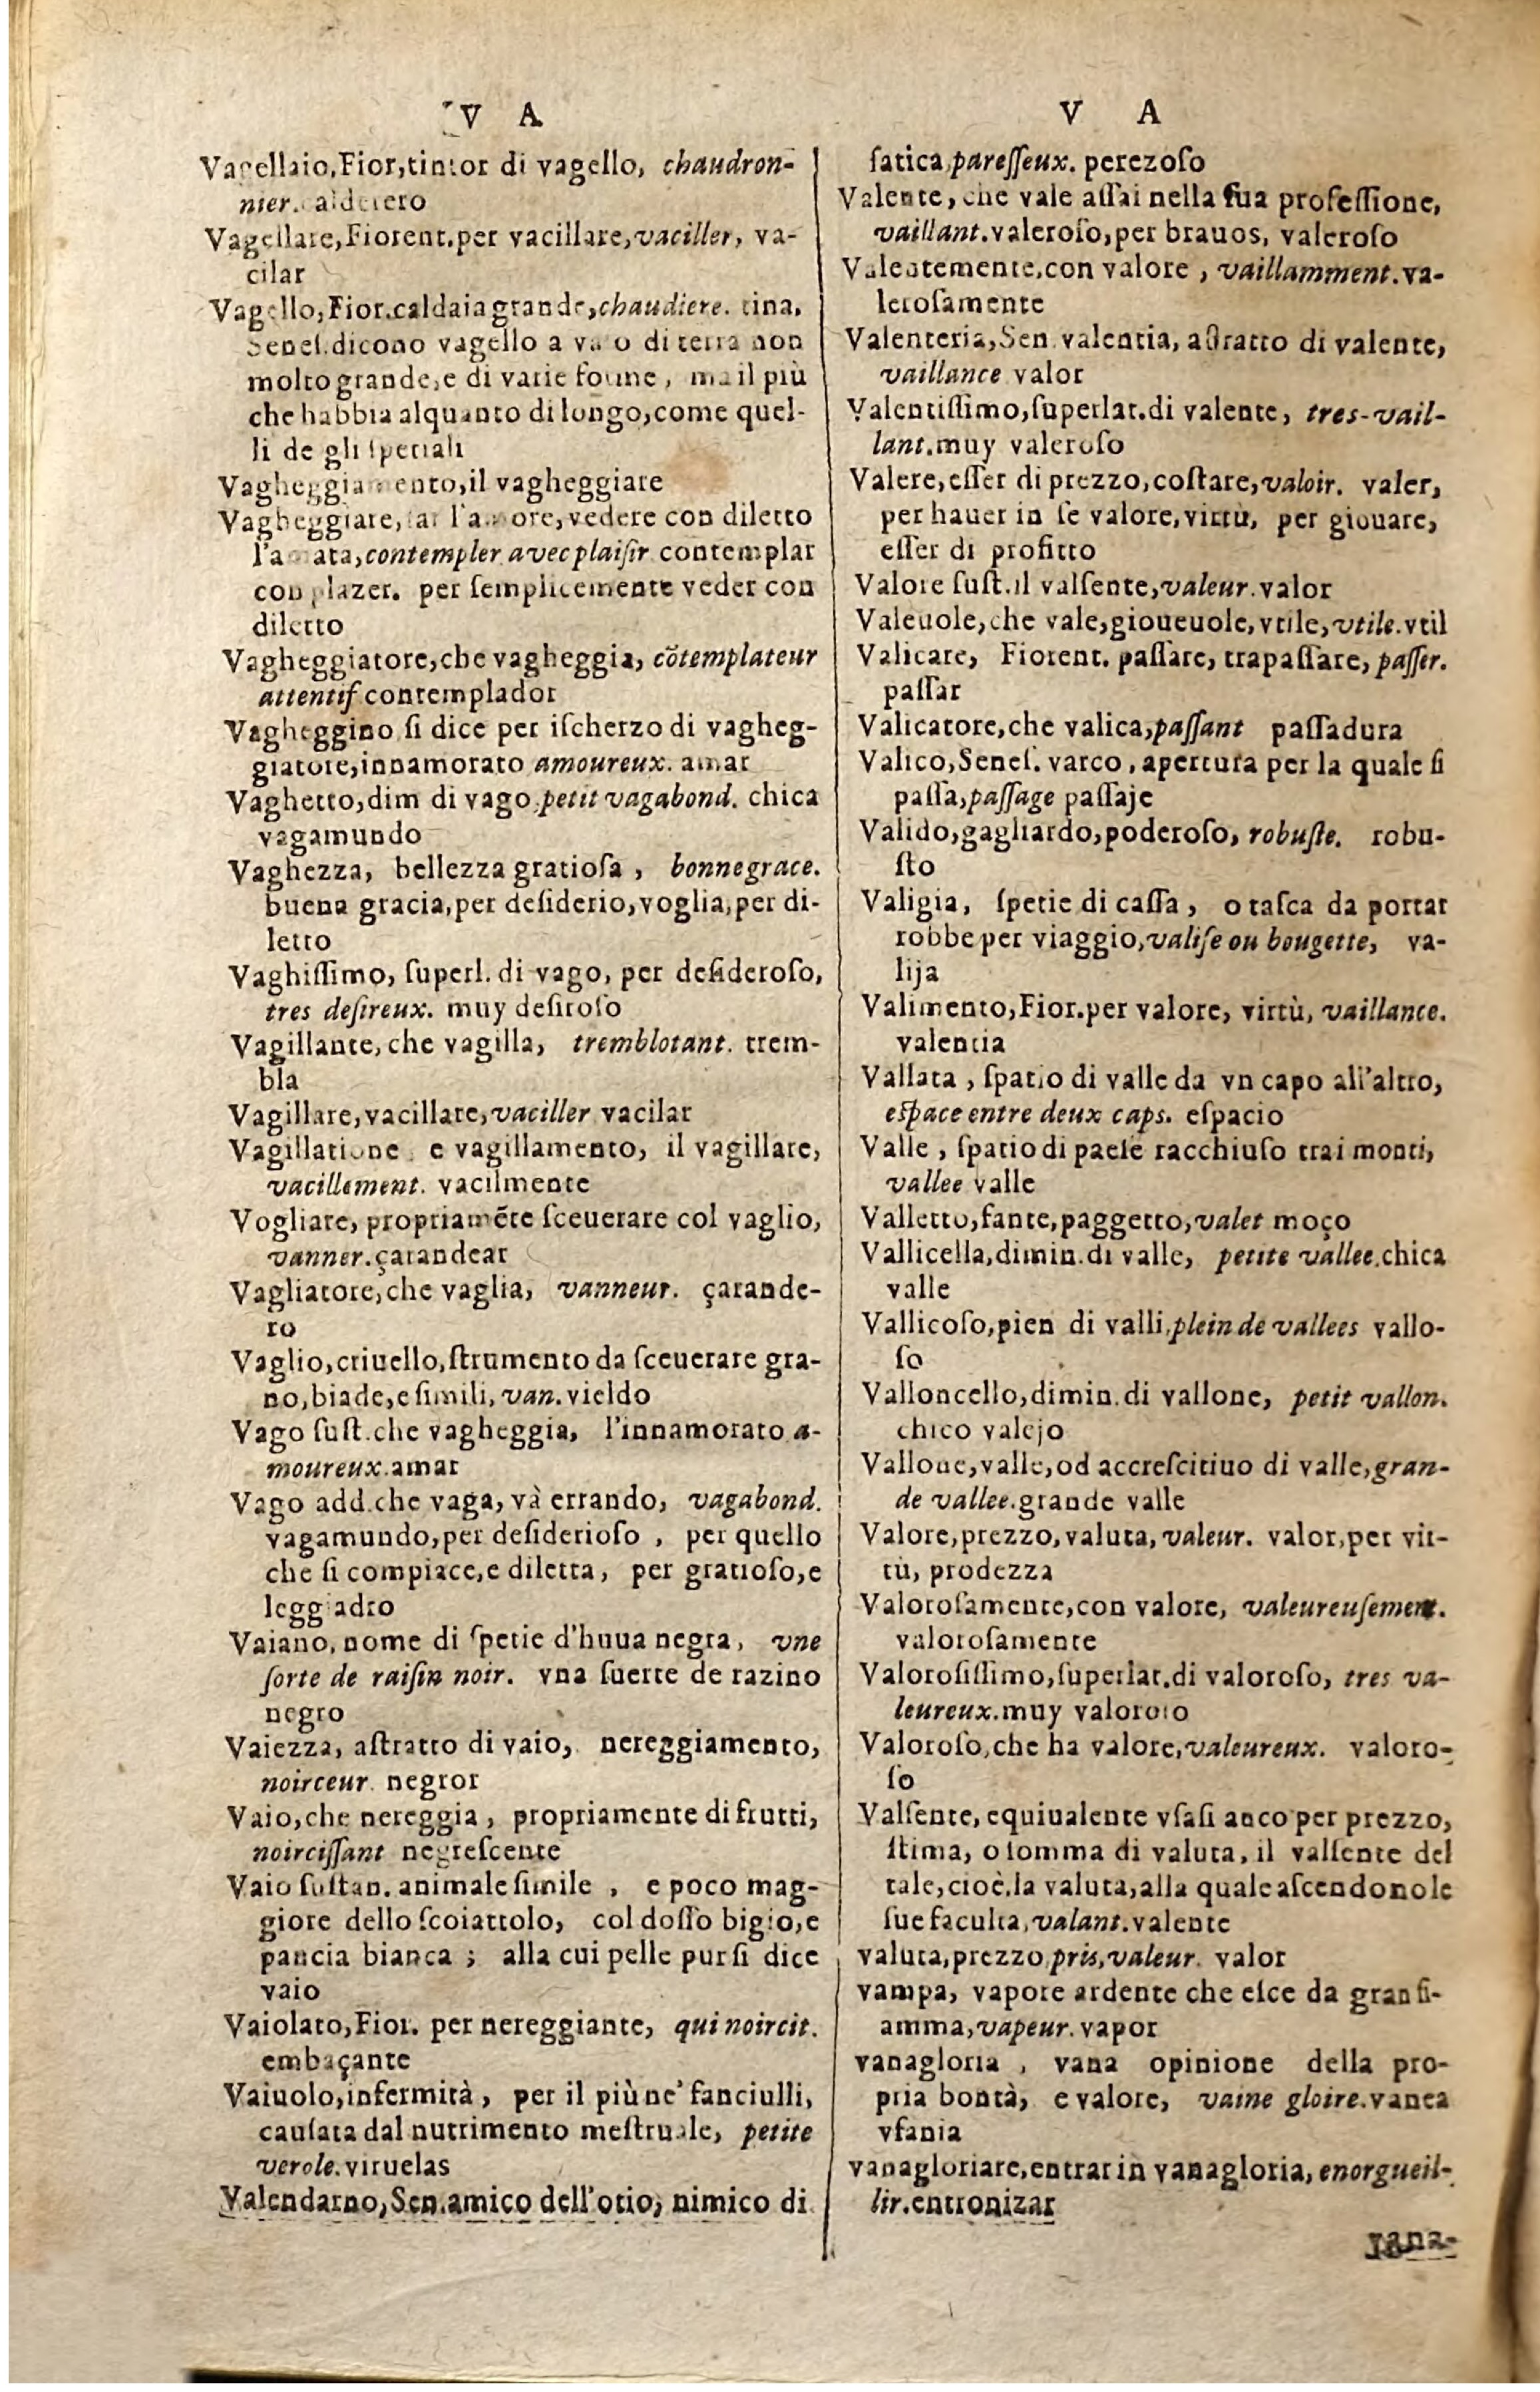 V A
Vagellaio,Fior,tintor di vagello, chaudron-
nier. calderero
Vagellare,Fiorent.per vacillare,vaciller, va-
cilar
Vagello,Fior.caldaia grande,chaudiere. tina,
Senes.dicono vagello a vaso di terra non
molto grande,e di varie forme, ma il più
che habbia alquanto di longo,come quel-
li de gli speciali
Vagheggiamento,il vagheggiare
Vagheggiare,far l'amore,vedere con diletto
l'amata,contempler avec plaiſir contemplar
con plazer. per ſemplicemente veder con
diletto
Vagheggiatore,che vagheggia, cõtemplateur
attentif contemplador
Vagheggino ſi dice per iſcherzo di vagheg-
giatore,innamorato amoureux. amar
Vaghetto,dim di vago,petit vagabond. chica
vagamundo
Vaghezza, bellezza gratioſa, bonnegrace.
buena gracia,per deſiderio,voglia,per di-
letto
Vaghiſſimo, ſuperl. di vago, per deſideroſo,
tres deſireux. muy deſiroſo
Vagillante, che vagilla, tremblotant. trem-
bla
Vagillare,vacillare,vaciller vacilar
Vagillatione e vagillamento, il vagillare,
vacillement. vacilmente
Vogliare, propriamẽte ſceuerare col vaglio,
vanner.çarandear
Vagliatore,che vaglia, vanneur. çarande-
ro
Vaglio,criuello,ſtrumento da ſceuerare gra-
no,biade,e ſimili, van. vieldo
Vago ſuſt.che vagheggia, l'innamorato a-
moureux.amar
Vago add.che vaga, và errando, vagabond.
vagamundo,per deſiderioſo, per quello
che ſi compiace,e diletta, per gratioſo,e
leggiadro
Vaiano, nome di ſpetie d'huua negra, vne
ſorte de raiſin noir. vna ſuerte de razino
negro
Vaiezza, aſtratto di vaio, nereggiamento,
noirceur. negror
Vaio,che nereggia, propriamente di frutti,
noirciſſant negreſcente
Vaio ſuſtan. animale ſimile, e poco mag-
giore dello ſcoiattolo, col doſſo bigio,e
pancia bianca; alla cui pelle pur ſi dice
vaio
Vaiolato,Fior. per nereggiante, qui noircit.
embaçante
Vaiuolo,infermità, per il più ne' fanciulli,
cauſata dal nutrimento meſtruale, petite
verole.viruelas
Valendarno,Sen.amico dell'otio, nimico di
V A
fatica,pareſſeux. perezoſo
Valente, che vale aſſai nella ſua profeſſione,
vaillant.valeroſo,per brauos, valeroſo
Valentemente,con valore, vaillamment.va-
leroſamente
Valenteria,Sen.valentia, aſtratto di valente,
vaillance valor
Valentiſſimo,ſuperlat.di valente, tres-vail-
lant.muy valeroſo
Valere,eſſer di prezzo,coſtare,valoir. valer,
per hauer in ſe valore,virtù, per giouare,
eſſer di profitto
Valore ſuſt.il valſente,valeur.valor
Valeuole,che vale,gioueuole,vtile,vtile.vtil
Valicare, Fiorent. paſſare, trapaſſare,paſſer.
paſſar
Valicatore,che valica,paſſant paſſadura
Valico,Seneſ. varco, apertura per la quale ſi
paſſa,paſſage paſſaje
Valido,gagliardo,poderoſo, robuſte. robu-
ſto
Valigia, ſpetie di caſſa, o taſca da portar
robbe per viaggio,valiſe ou bougette, va-
lija
Valimento,Fior.per valore, virtù, vaillance.
valentia
Vallata, ſpatio di valle da vn capo all'altro,
eſpace entre deux caps. eſpacio
Valle, ſpatio di paeſe racchiuſo trai monti,
vallee valle
Valletto,fante,paggetto,valet moço
Vallicella,dimin.di valle, petite vallee.chica
valle
Vallicoſo,pien di valli,plein de vallees vallo-
ſo
Valloncello,dimin.di vallone, petit vallon.
chico valejo
Vallone,valle,od accreſcitiuo di valle,gran-
de vallee.grande valle
Valore,prezzo,valuta,valeur. valor,per vir-
tù, prodezza
Valoroſamente,con valore, valeureuſement.
valoroſamente
Valoroſiſſimo,ſuperlat.di valoroſo, tres va-
leureux.muy valoroſo
Valoroſo,che ha valore,valeureux. valoro-
ſo
Valſente, equiualente vſaſi anco per prezzo,
ſtima, o ſomma di valuta, il valſente del
tale,cioè,la valuta,alla quale aſcendono le
ſue faculta,valant.valente
valuta,prezzo,pris,valeur. valor
vampa, vapore ardente che eſce da gran fi-
amma,vapeur. vapor
vanagloria, vana opinione della pro-
pria bontà, e valore, vaine gloire.vanea
vfania
vanagloriare,entrar in vanagloria, enorgueil-
lir.entronizar
vana-